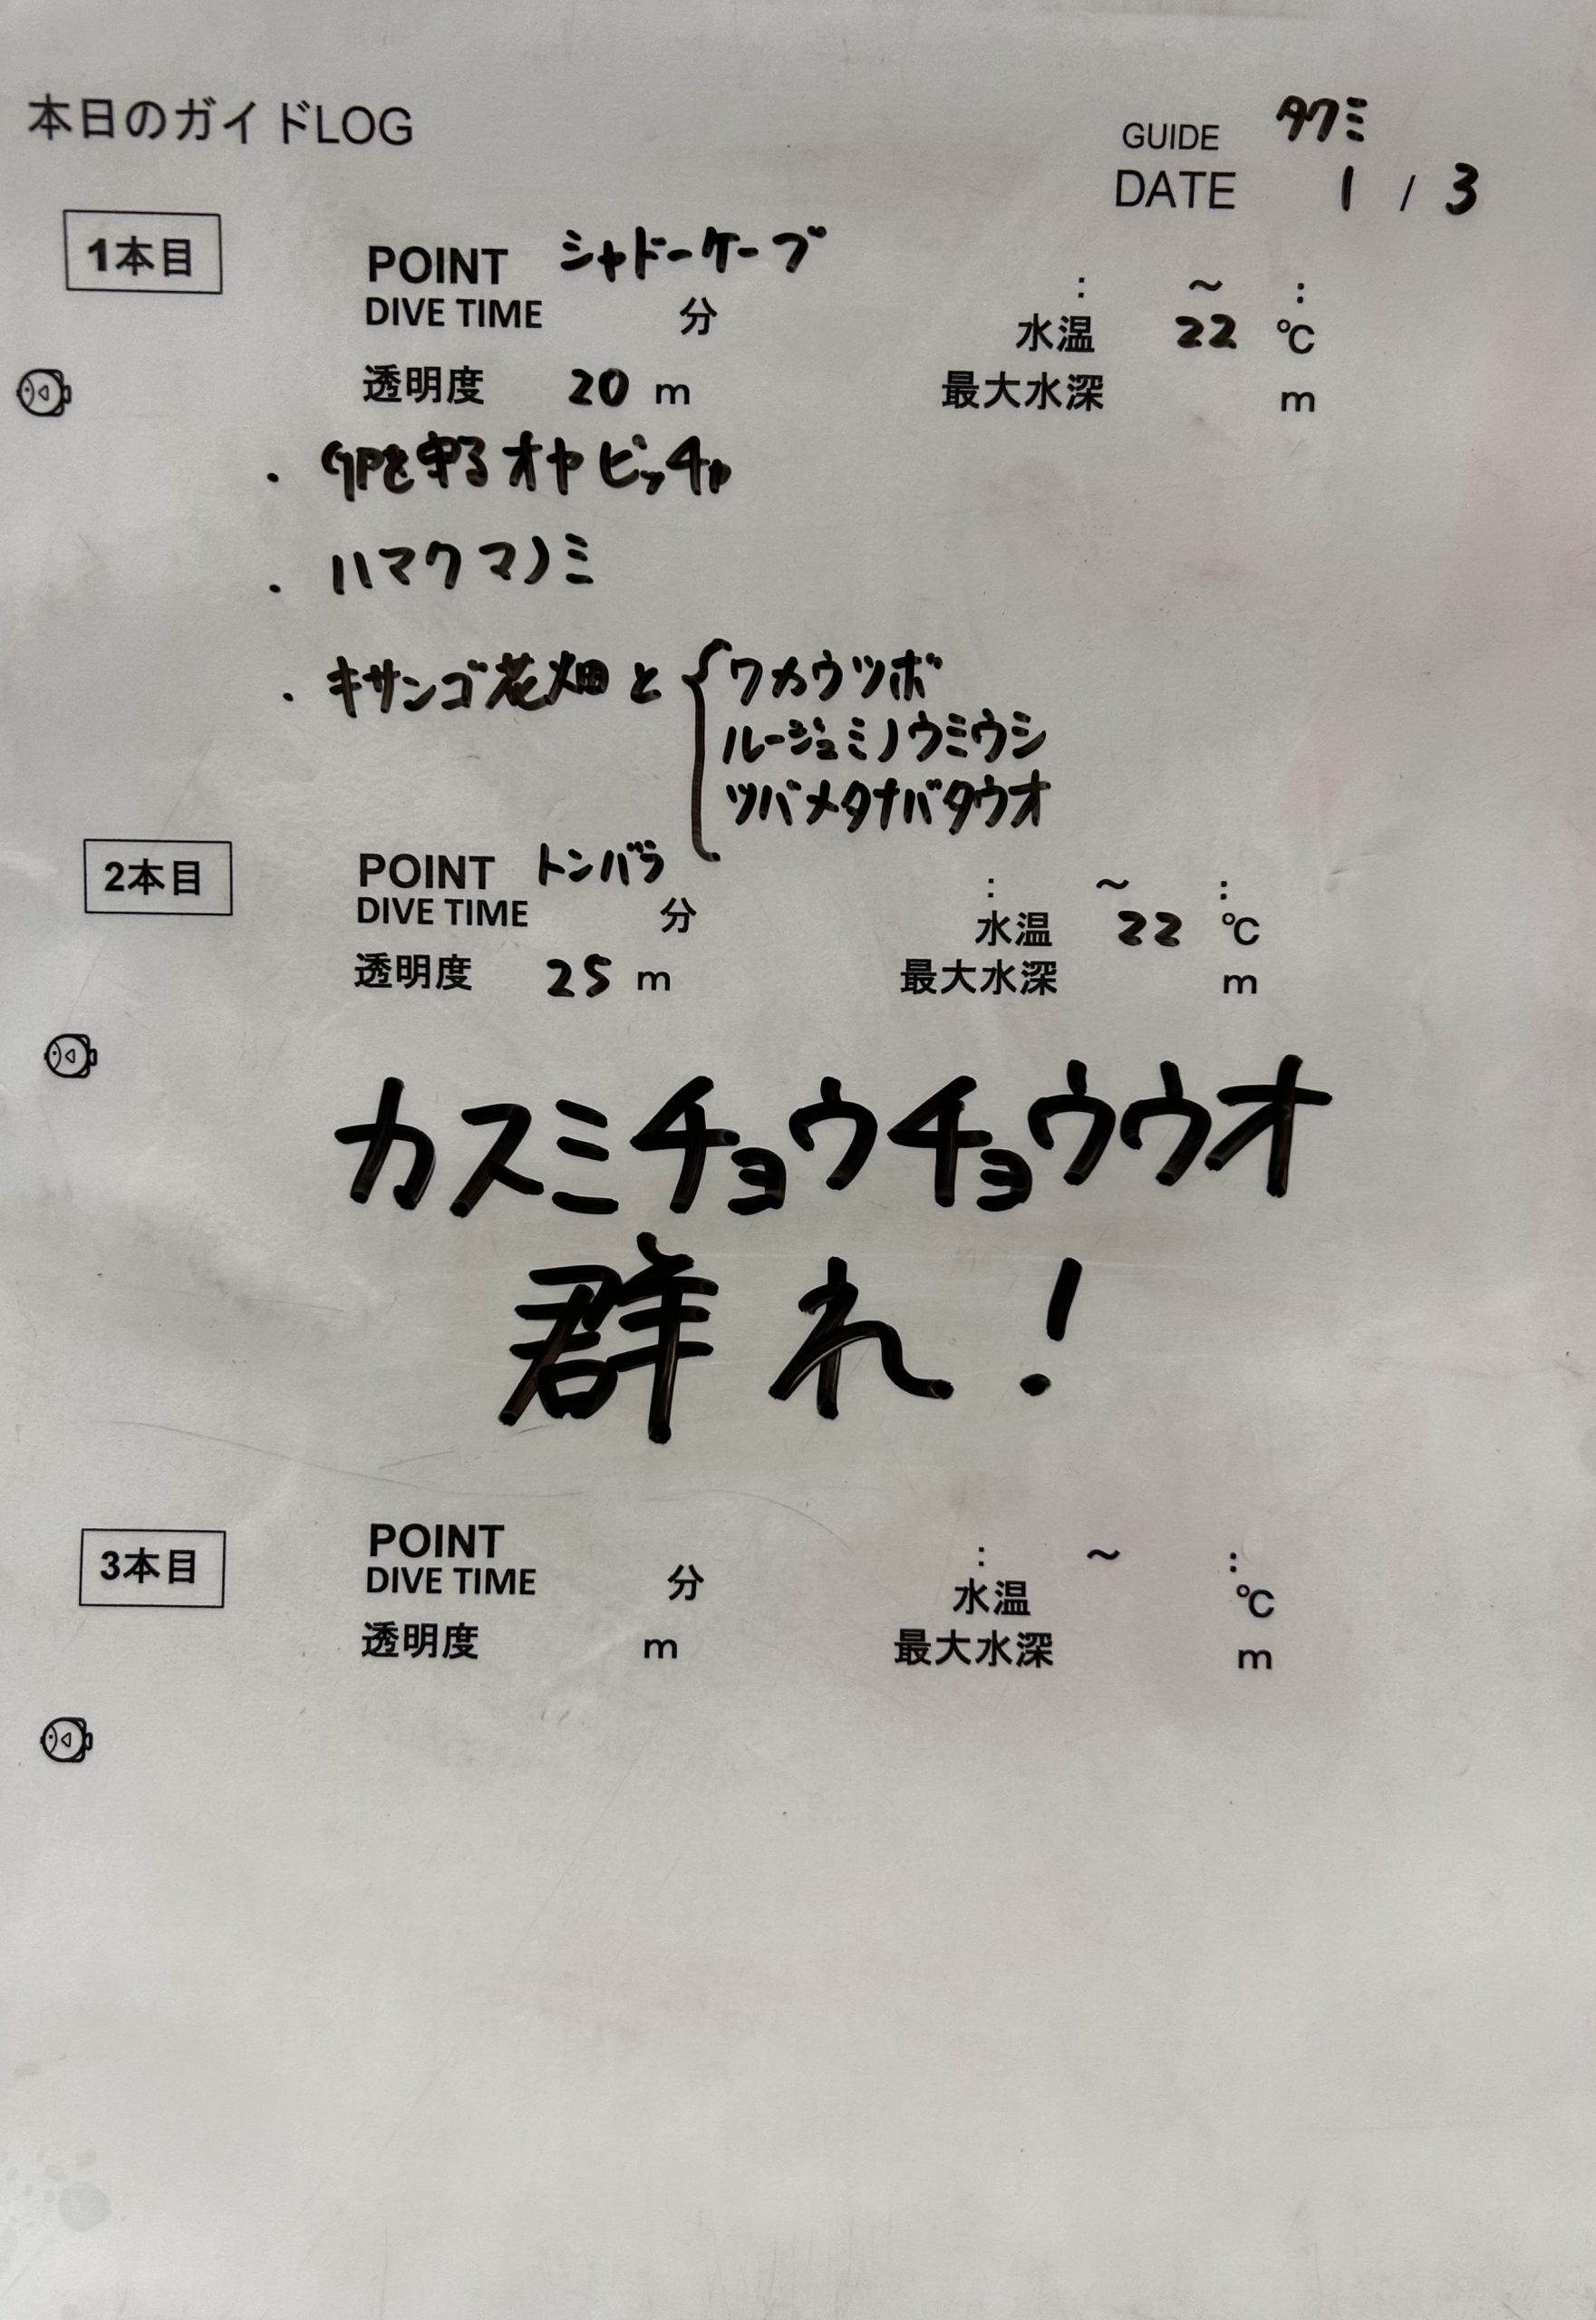 本日のガイドLOG
GUIDE タクミ
DATE 1 / 3
1本目
POINT シャドーケーブ
: ～ :
DIVE TIME 分
水温 22 ℃
透明度 20 m
最大水深 m
・ を守るオヤビッチャ
・ハマクマノミ
・キサンゴ花畑と { ワカウツボ
ルージュミノウミウシ
ツバメタナバタウオ
2本目
POINT トンバラ
: ～ :
DIVE TIME 分
水温 22 ℃
透明度 25 m
最大水深 m
カスミチョウチョウウオ
群れ!
3本目
POINT
: ～ :
DIVE TIME 分
水温 ℃
透明度 m
最大水深 m